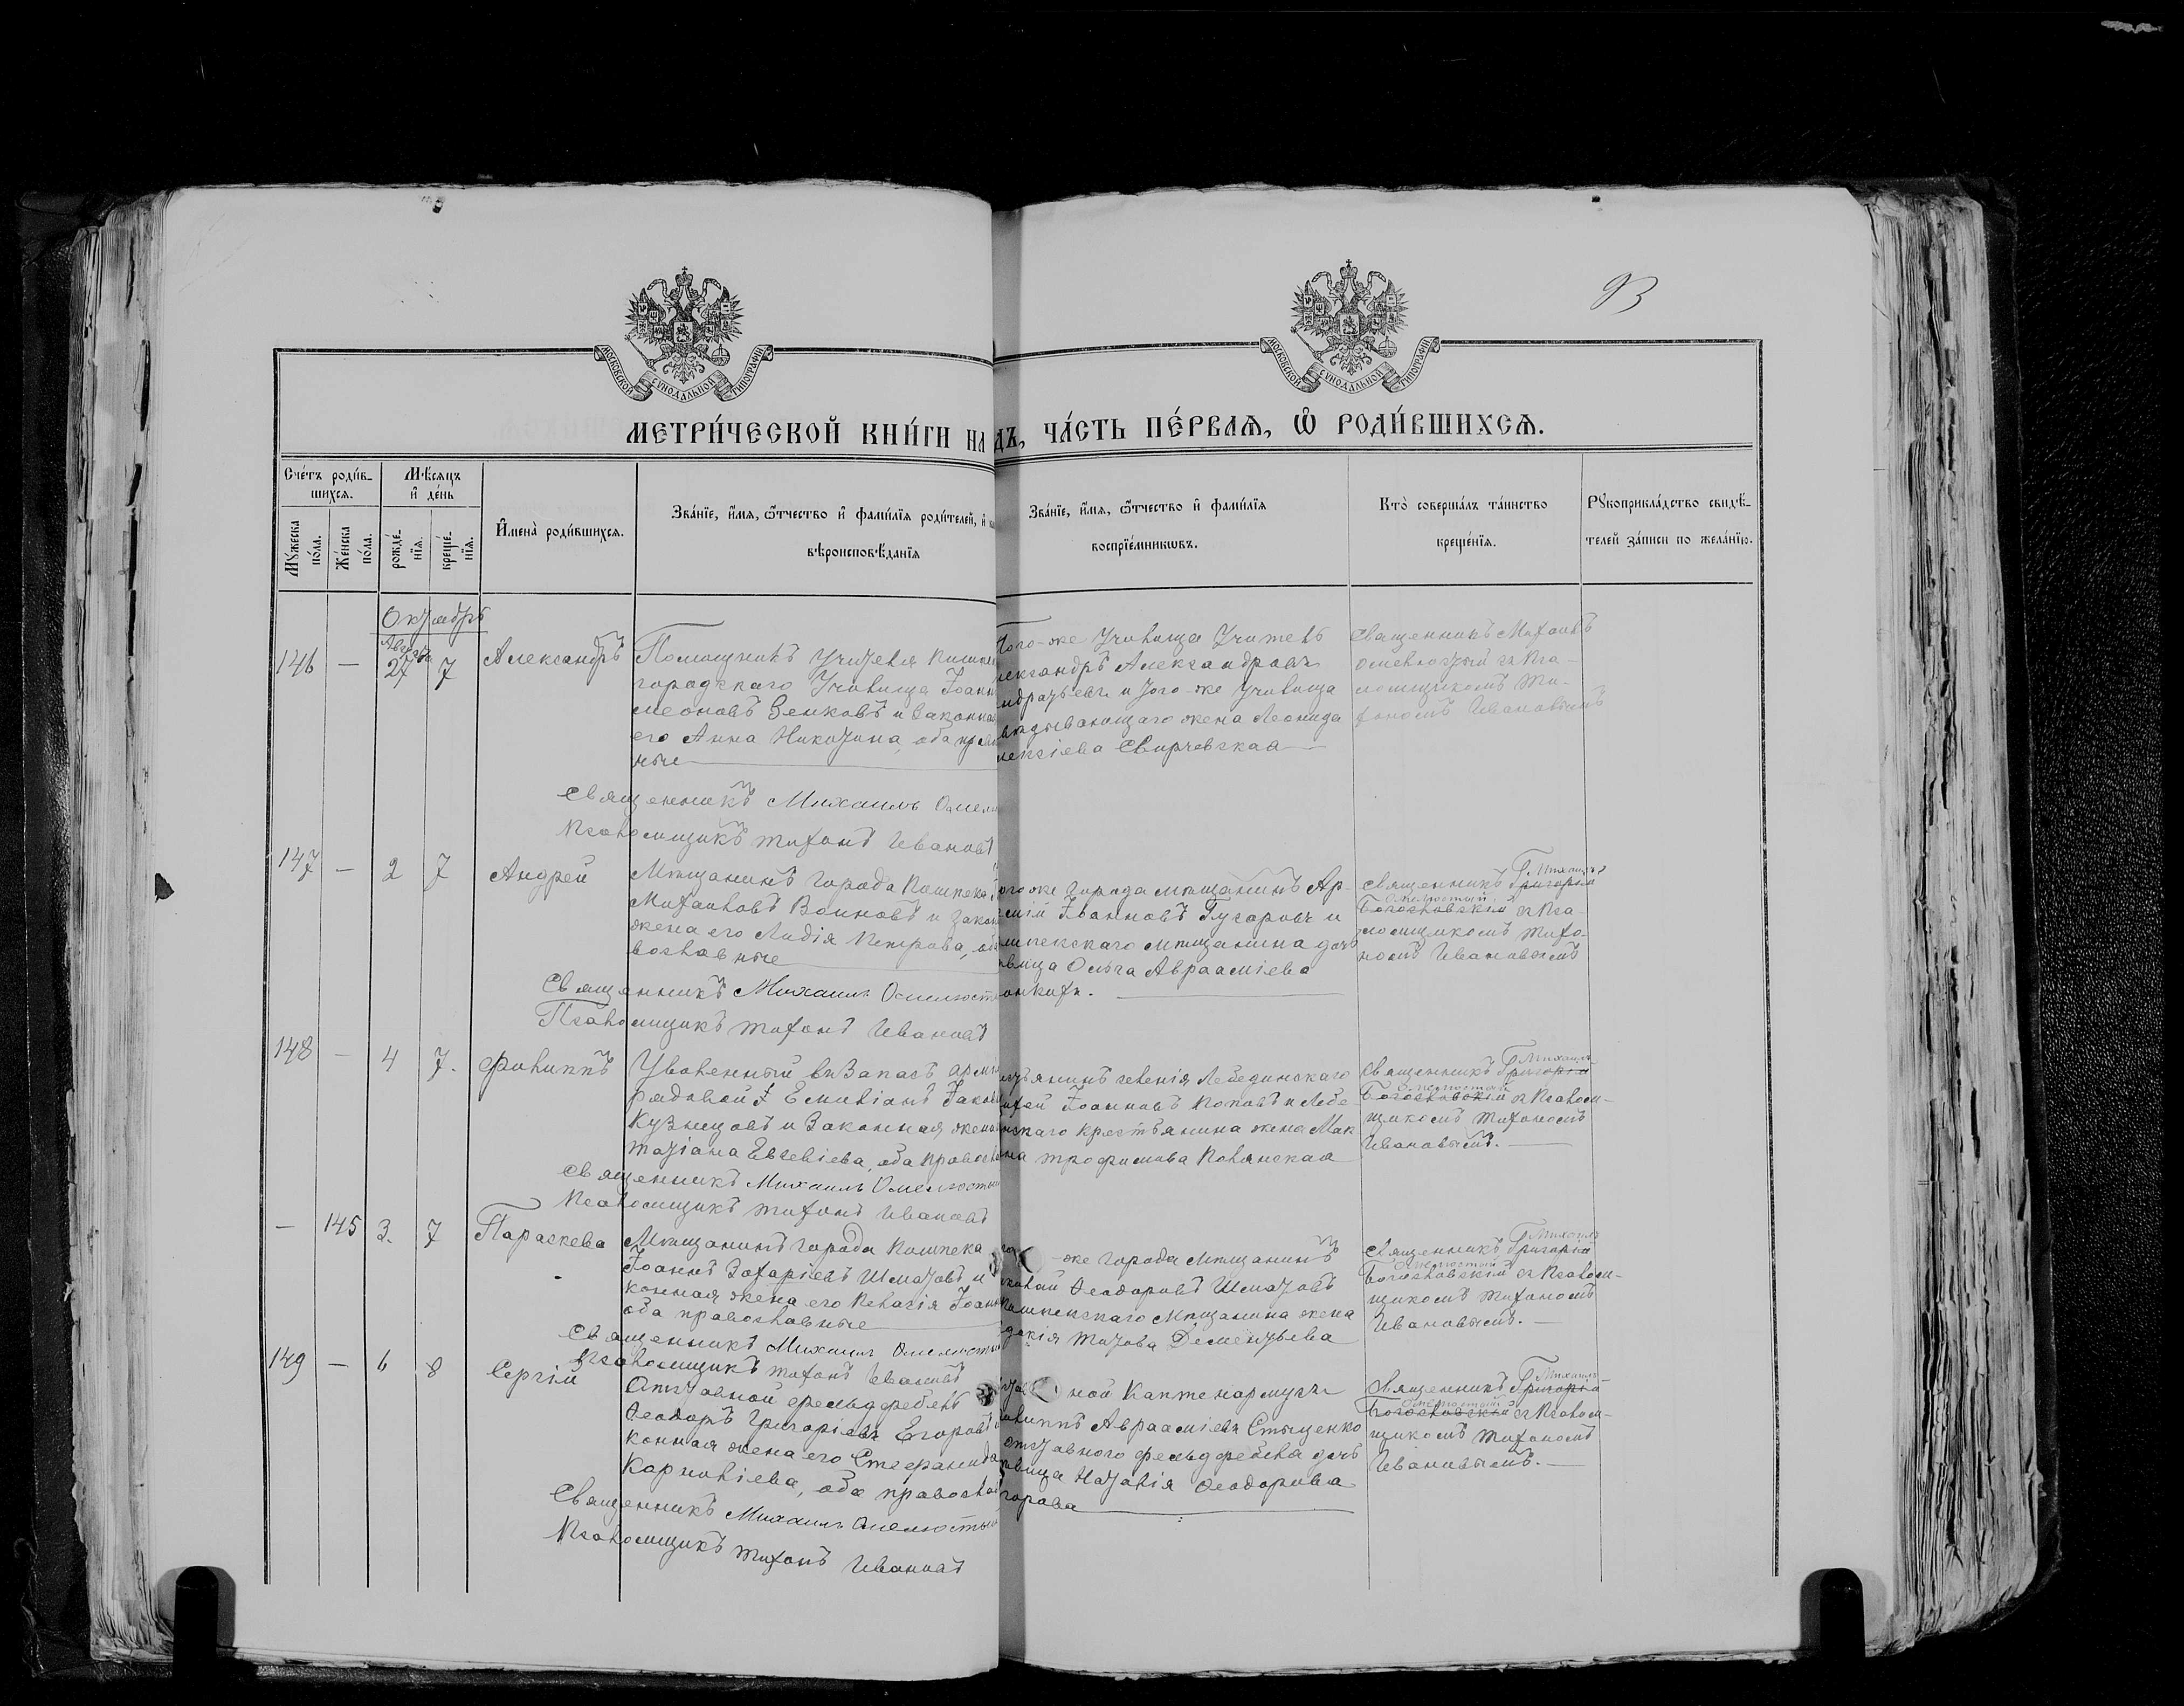 93
МОСКОВСКОЙ СѴНОДАЛЬНОЙ ТИПОГРАФІИ
МОСКОВСКОЙ СѴНОДАЛЬНОЙ ТИПОГРАФІИ
МЕТРИ́ЧЕСКОЙ КНИ́ГИ НА ДЪ, ЧА́СТЬ ПЕ́РВАѦ, Ѡ҆ РОДИ́ВШИХСѦ.
Сче́тъ роди́в-
шихсѧ.
Мꙋжеска по́ла.
Же́нска по́ла.
Мѣ́сѧцъ
и҆ де́нь
рожде́-
нїѧ.
креще́-
нїѧ.
И҆мена̀ роди́вшихсѧ.
Зва́нїе, и҆́мѧ, ѻ҆́тчество и҆ фами́лїѧ роди́телей, и҆
вѣроисповѣ́данїѧ
Зва́нїе, и҆́мѧ, ѻ҆́тчество и҆ фами́лїѧ
воспрїе́мниковъ.
Кто̀ соверша́лъ та́инство
креще́нїѧ.
Рꙋкоприкла́дство свидѣ́-
телей за́писи по жела́нїю.
Октябрь
146 — 27 7 Александръ
Помощникъ Учителя Пишпек
городскаго Училища Іоанн
меоновъ Зенковъ и Законная
его Анна Никитина, оба православ
ные
Того-же Училища Учитель
лександръ Александровъ
и того-же Училища
жена Леонида
лексіева Свирчевская
Священникъ Михаилъ
Омелюстый съ Пса-
ломщикомъ Ти-
хономъ Ивановымъ
Священникъ Михаилъ Омелю
Псаломщикъ Тихонъ Ивановъ
147 — 2 7 Андрей
Мѣщанинъ города Пишпека
Михаиловъ Воиновъ и закон
жена его Лидія Петрова, оба
вославные
ого же города мѣщанинъ Ар-
сеній Іоанновъ Гусаровъ и
шпекскаго мѣщанина дочь
ѣвица Ольга Авраамiева
Священникъ Григорій Михаилъ
Богословскій Омелюстый съ Пса-
ломщикомъ Тихо-
номъ Ивановымъ
Священникъ Михаилъ Омелюсты
Псаломщикъ Тихонъ Ивановъ
148 — 4 7. Филиппъ
Уволенный въ Запасъ арміи
рядовой Емиліанъ Іаковл
Кузнецовъ и Законная жена
Татіана Евсевіева, оба правосла
естьянинъ селенія Лебединскаго
Іоанновъ Поповъ и Лебе
нскаго крестьянина жена Мак
на Трофимова Полянская
Священникъ Григорій Михаилъ
Богословскій Омелюстый съ Псалом-
щикомъ Тихономъ
Ивановымъ.
Священникъ Михаилъ Омелюстый
Псаломщикъ Тихонъ Ивановъ
— 145 3. 7 Параскева
Мѣщанинъ города Пишпека
Іоаннъ Захаріевъ Шматовъ и
конная жена его Пелагія Іоанн
оба православные
-же города Мѣщанинъ
колай Ѳеодоровъ Шматовъ
Пишпекскаго Мѣщанина жена
докія Титова Дементьева
Священникъ Григорій Михаилъ
Богословскій Омелюстый съ Псалом-
щикомъ Тихономъ
Ивановымъ.
Священникъ Михаилъ Омелюстый
Псаломщикъ Тихонъ Ивановъ
149 — 6 8 Сергій
Отставной фельдфебель
Ѳеодоръ Григоріевъ Егоровъ
конная жена его Стефанида
Карниліева, оба православ
ной Каптенармусъ
илиппъ Авраамiевъ Стыценко
отставного фельдфебеля дочь
ѣвица Наталія Ѳеодорова
горова
Священникъ Григорій Михаилъ
Богословскій Омелюстый съ Псалом-
щикомъ Тихономъ
Ивановымъ.
Священникъ Михаилъ Омелюстый
Псаломщикъ Тихонъ Ивановъ